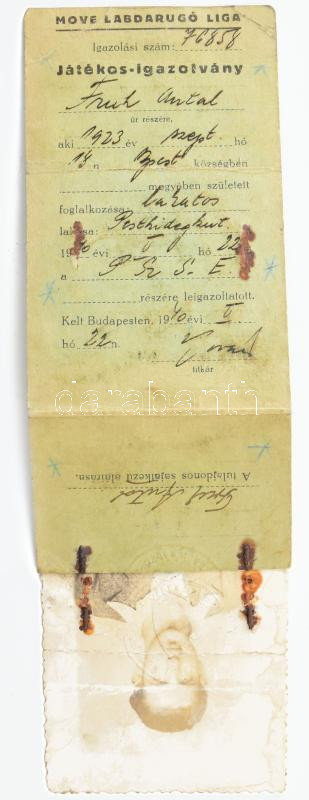 MOVE LABDARUGÓ LIGA
Igazolási szám: 76858
Játékos-igazolvány
Fruh Antal
úr részére,
aki 1923 év szept. hó
14 n Bpest községben
megyében született
foglalkozása: lakatos
lakása: Pesthidegkut.
1940 évi V hó 22 n
a P. Sz. S. E.
részére leigazoltatott.
Kelt Budapesten, 1940 évi V
hó 22 n.
titkár
darabanth
A tulajdonos sajátkezű aláírása.
Antal